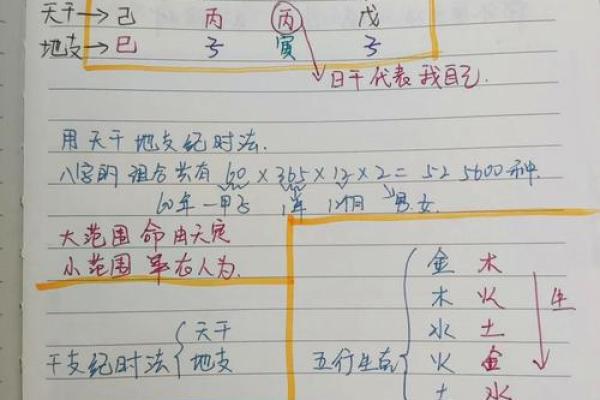 天干→ 己 丙 丙 戊
地支→ 巳 子 寅 子
日干代表我自己.
用天干地支纪时法.
八字的组合共有 60×365×12×2= 52 5600种.
60年一甲子 1年 12个 男女.
大范围 命由天定
小范围 事在人为.
干支纪时法
天干
地支
五行生克
金 木
木 火
水 土
火 金
土 水
生